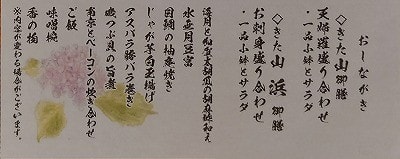 おしながき
◇きた山御膳
天婦羅盛り合わせ
・一品小鉢とサラダ
◇きた山 浜 御膳
お刺身盛り合わせ
・一品小鉢とサラダ
海月と加賀太胡瓜の胡麻酢和え
水無月豆富
目鯛の柚庵焼き
じゃが芋白玉揚げ
アスパラ豚バラ巻き
磯つぶ貝の旨煮
南京とベーコンの炊き合わせ
ご飯
味噌椀
香の物
※内容が変わる場合がございます。